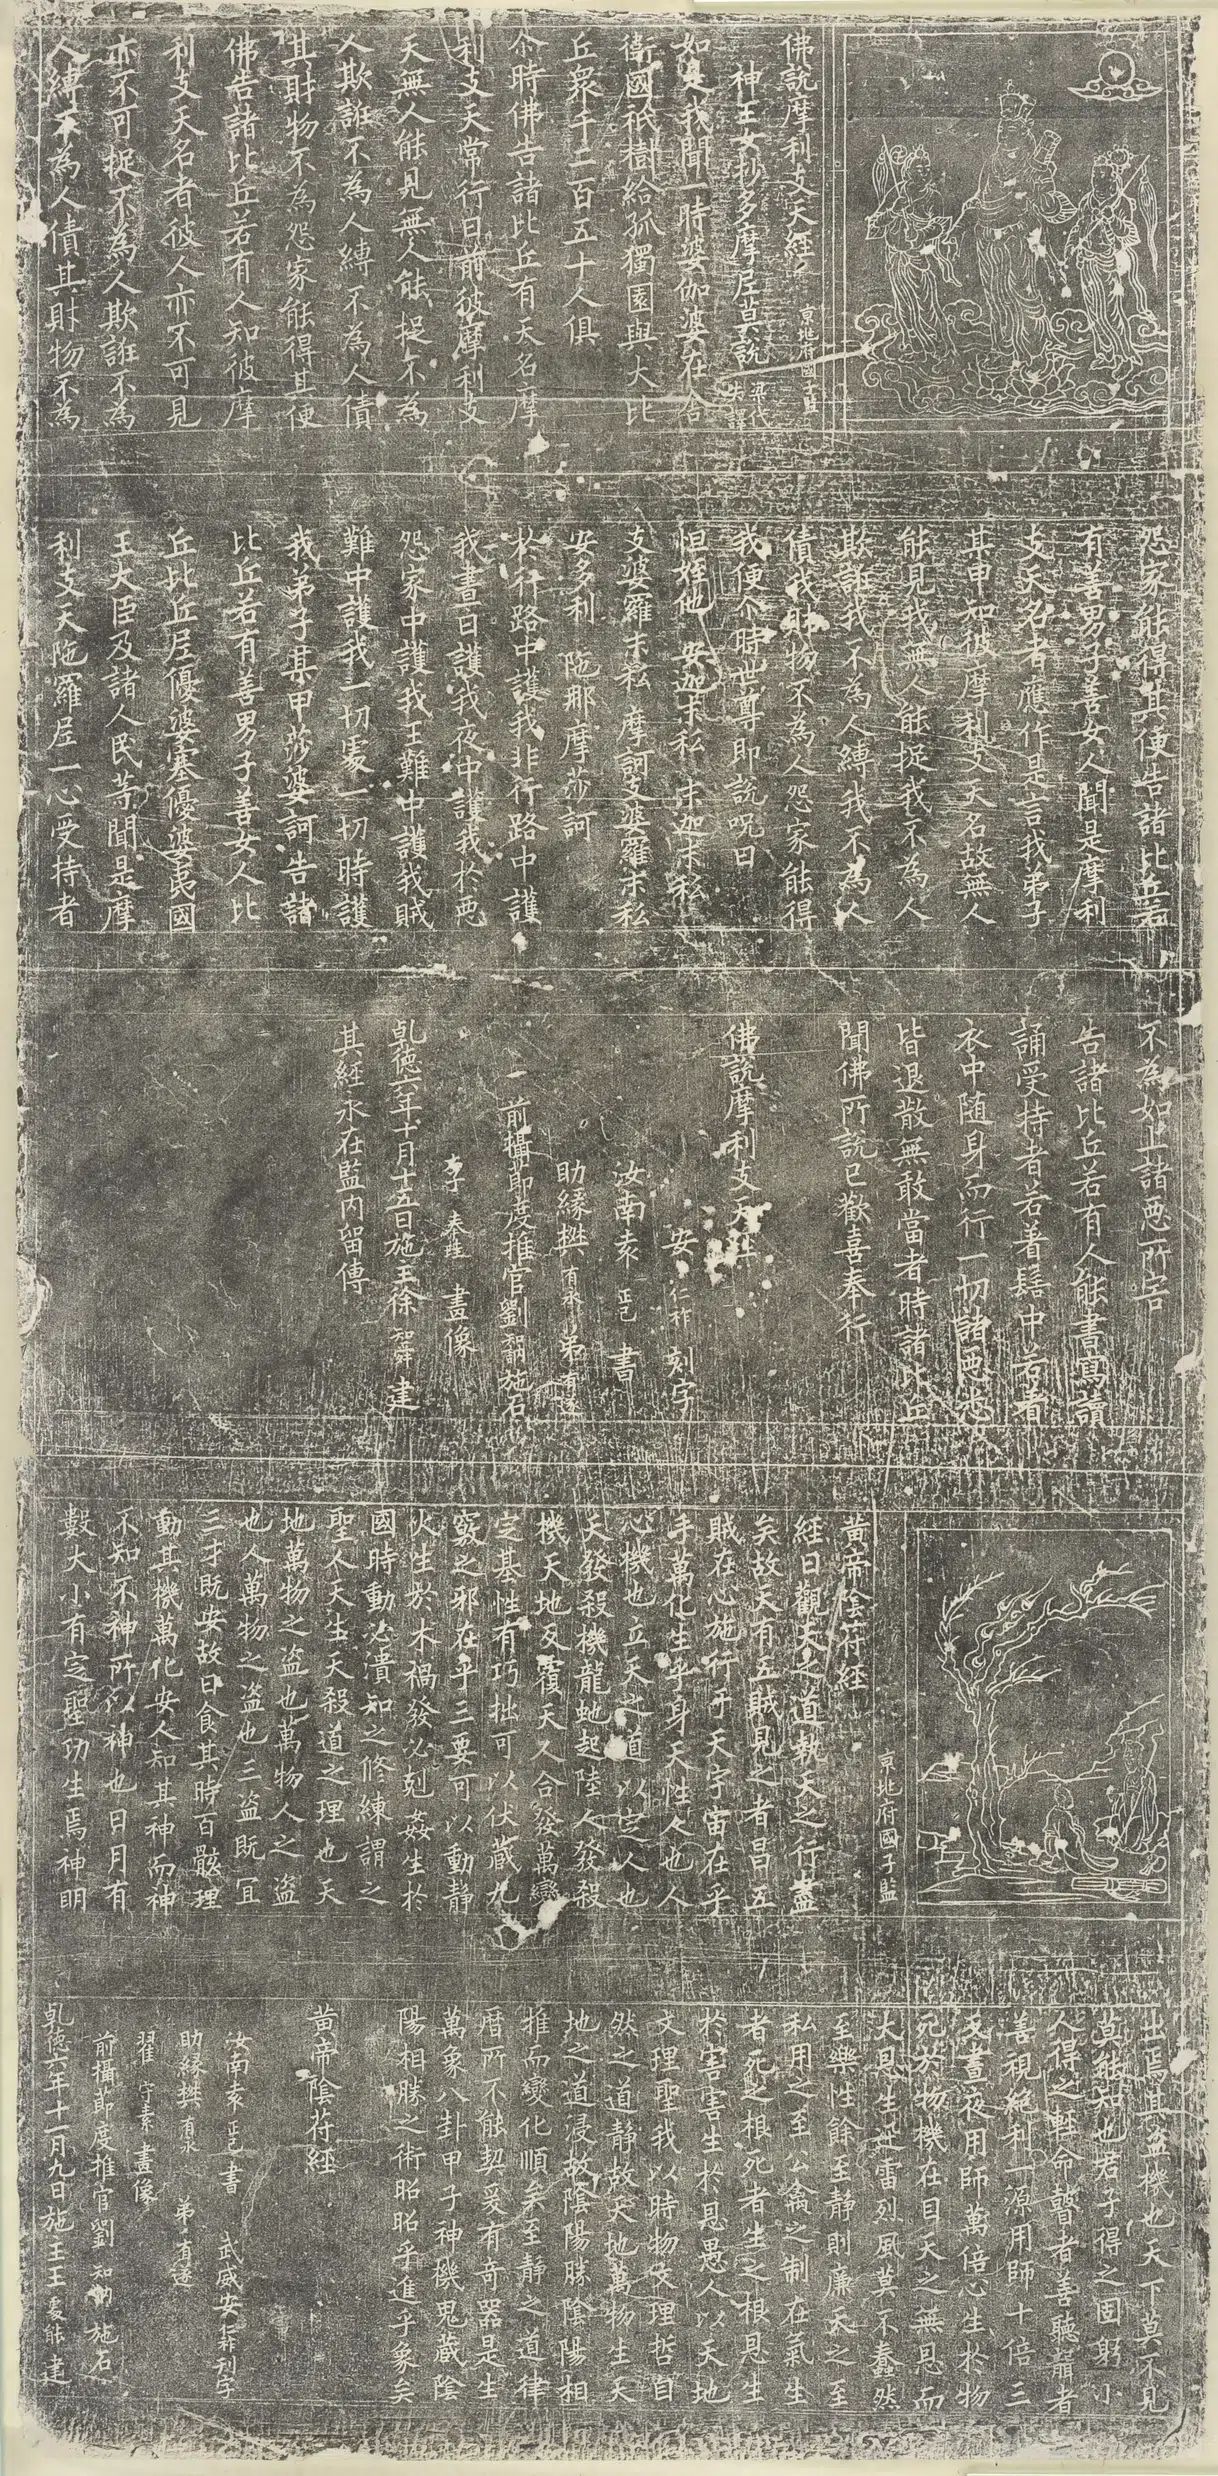 佛說摩利支天經
京兆府國子監
神王女抄多摩尼莫說 梁代失譯
如是我聞一時婆伽婆在舍
衛國祇樹給孤獨園與大比
丘眾千二百五十人俱
尒時佛告諸比丘有天名摩
利支天常行日前彼摩利支
天無人能見無人能捉不為
人欺誑不為人縛不為人債
其財物不為怨家能得其便
佛告諸比丘若有人知彼摩
利支天名者彼人亦不可見
亦不可捉不為人欺誑不為
人縛不為人債其財物不為
怨家能得其便告諸比丘若
有善男子善女人聞是摩利
支天名者應作是言我弟子
某甲知彼摩利支天名故無人
能見我無人能捉我不為人
欺誑我不為人縛我不為人
債我財物不為人怨家能得
我便尒時世尊即說呪曰
怛姪他 安迦末私 末迦末私
支婆羅末私 摩訶支婆羅末私
安多利 陁那摩莎訶
於行路中護我非行路中護
我晝日護我夜中護我於惡
怨家中護我王難中護我賊
難中護我一切處一切時護
我弟子某甲莎婆訶告諸
比丘若有善男子善女人比
丘比丘尼優婆塞優婆夷國
王大臣及諸人民等聞是摩
利支天陁羅尼一心受持者
不為如上諸惡所害
告諸比丘若有人能書寫讀
誦受持者若著髻中若著
衣中随身而行一切諸惡悉
皆退散無敢當者時諸比丘
聞佛所說已歡喜奉行
佛說摩利支天經
安仁祚 刻字
汝南袁正己 書
助緣樊有永 弟有遂
前攝節度推官劉知訥施石
李奉珪 畫像
乹德六年十月十五日施主徐知舜 建
其經永在監內留傳
京兆府國子監
黃帝陰符經
經曰觀天之道執天之行盡
矣故天有五賊見之者昌五
賊在心施行乎天宇宙在乎
手萬化生乎身天性人也人
心機也立天之道以定人也
天發殺機龍虵起陸人發殺
機天地反覆天人合發萬變
定基性有巧拙可以伏藏九
竅之邪在乎三要可以動靜
火生於木禍發必剋姦生於
國時動必潰知之修練謂之
聖人天生天殺道之理也天
地萬物之盜也萬物人之盜
也人萬物之盜也三盜既宜
三才既安故曰食其時百骸理
動其機萬化安人知其神而神
不知不神所以神也日月有
數大小有定聖功生焉神明
出焉其盜機也天下莫不見
莫能知也君子得之固躬小
人得之輕命瞽者善聽聾者
善視絕利一源用師十倍三
反晝夜用師萬倍心生於物
死於物機在目天之無恩而
大恩生迅雷烈風莫不蠢然
至樂性餘至靜則廉天之至
私用之至公禽之制在氣生
者死之根死者生之根恩生
於害害生於恩愚人以天地
文理聖我以時物文理哲自
然之道靜故天地萬物生天
地之道浸故陰陽勝陰陽相
推而變化順矣至靜之道律
曆所不能契爰有奇器是生
萬象八卦甲子神機鬼藏陰
陽相勝之術昭昭乎進乎象矣
黃帝陰苻經
汝南袁正己書 武威安仁祚刊字
助緣樊有永 弟有遂
翟守素畫像
前攝節度推官劉知訥施石
乹德六年十一月九日施主王處能建